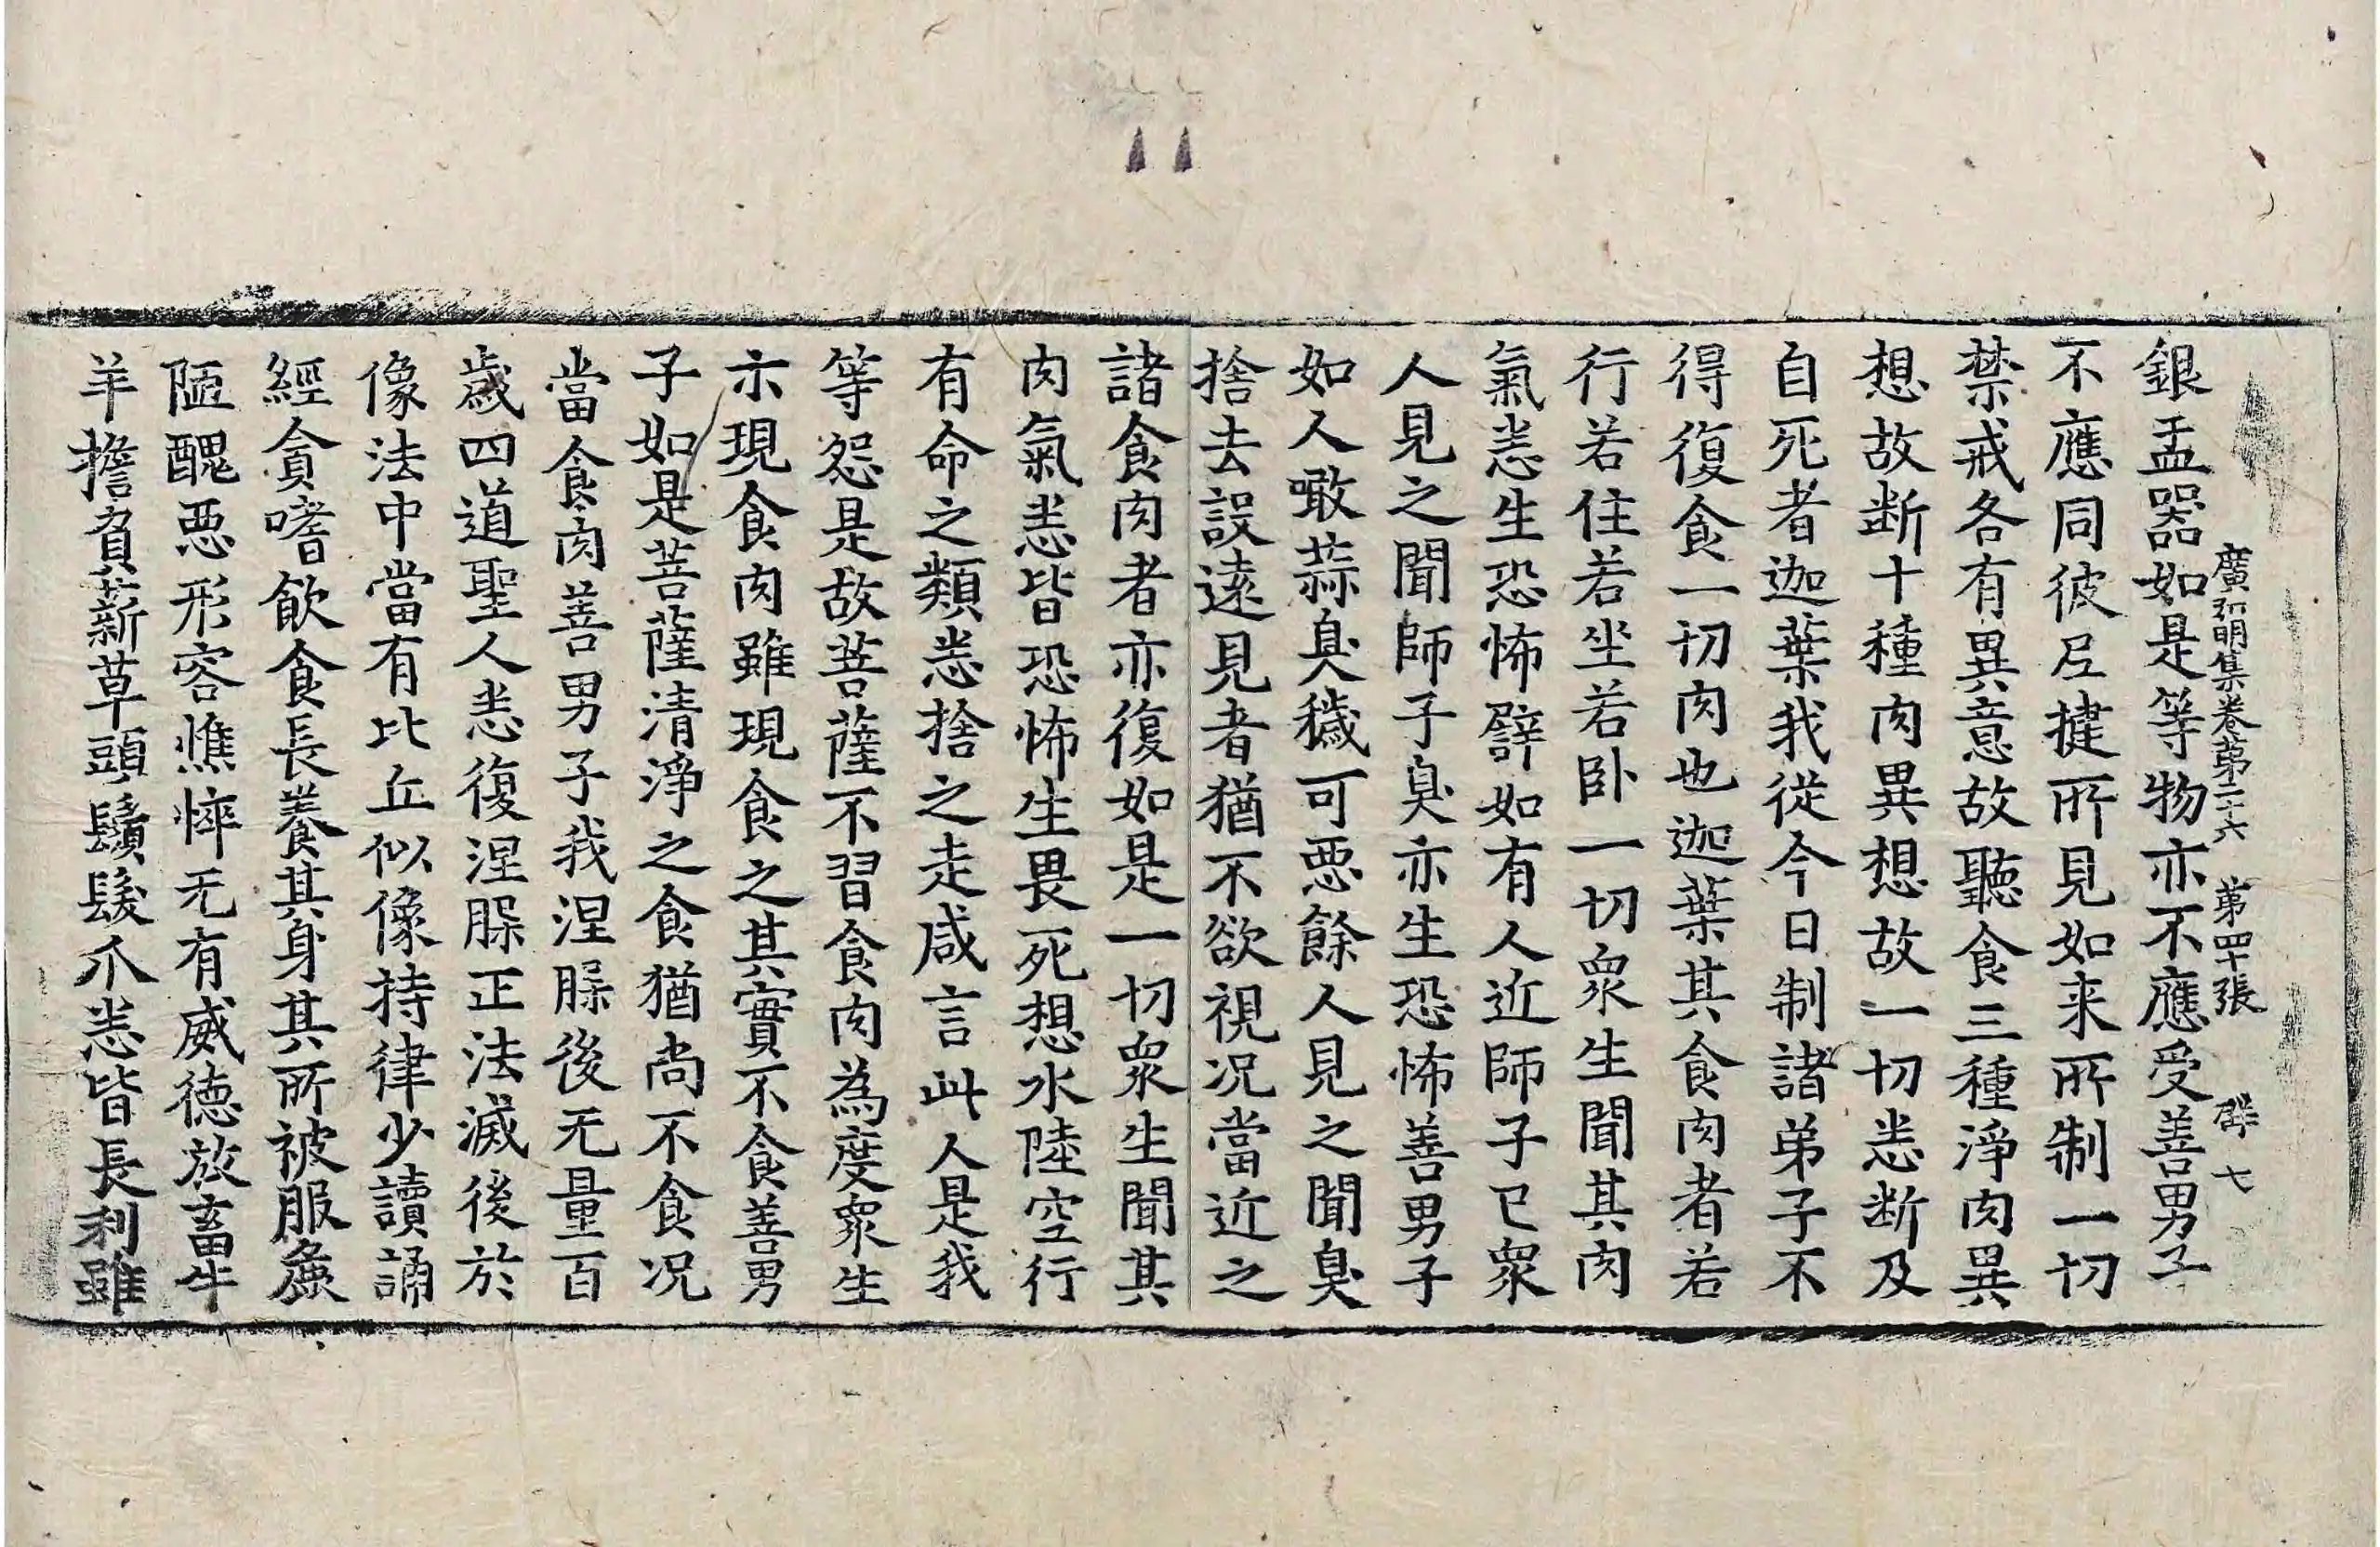 廣弘明集卷第二十六 第四十張 群七
銀盂器如是等物亦不應受善男子
不應同彼尼揵所見如来所制一切
禁戒各有異意故聽食三種淨肉異
想故断十種肉異想故一切悉断及
自死者迦葉我從今日制諸弟子不
得復食一切肉也迦葉其食肉者若
行若住若坐若卧一切衆生聞其肉
氣悉生恐怖譬如有人近師子已衆
人見之聞師子臭亦生恐怖善男子
如人噉蒜臭穢可惡餘人見之聞臭
捨去設遠見者猶不欲視况當近之
諸食肉者亦復如是一切衆生聞其
肉氣悉皆恐怖生畏死想水陸空行
有命之類悉捨之走咸言此人是我
等怨是故菩薩不習食肉為度衆生
示現食肉雖現食之其實不食善男
子如是菩薩清淨之食猶尚不食况
當食肉善男子我涅槃後无量百
歲四道聖人悉復涅槃正法滅後於
像法中當有比丘似像持律少讀誦
經貪嗜飲食長養其身其所被服麁
陋醜惡形容憔悴无有威德放畜牛
羊擔負薪草頭鬚髮爪悉皆長利雖